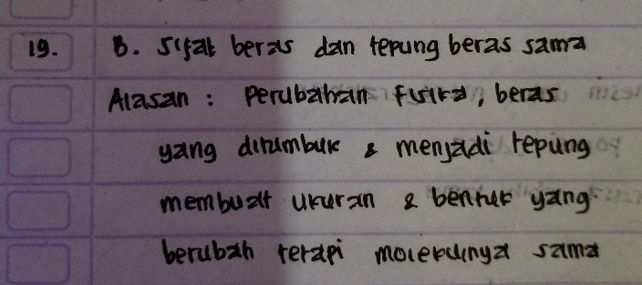 19. B. Sifat beras dan tepung beras sama
Alasan : Perubahan fisika, beras
yang ditumbuk & menjadi tepung
membuat ukuran & bentuk yang
berubah tetapi molekulnya sama